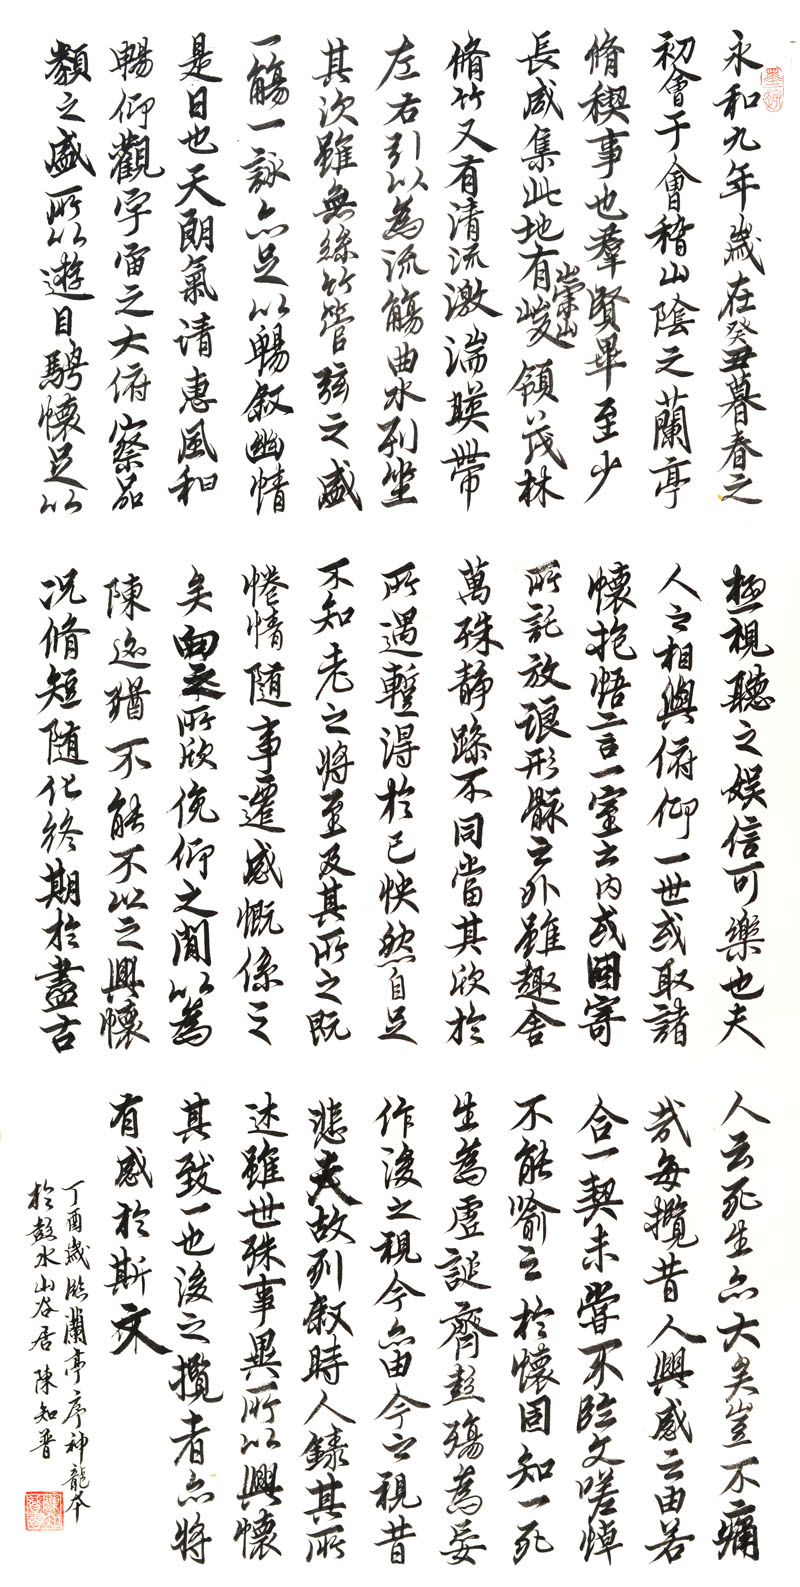 永和九年歲在癸丑暮春之
初會于會稽山陰之蘭亭
脩稧事也羣賢畢至少
長咸集此地有崇山峻領茂林
脩竹又有清流激湍暎帶
左右引以為流觴曲水列坐
其次雖無絲竹管弦之盛
一觴一詠亦足以暢叙幽情
是日也天朗氣清惠風和
暢仰觀宇宙之大俯察品
類之盛所以遊目騁懷足以
極視聽之娛信可樂也夫
人之相與俯仰一世或取諸
懷抱悟言一室之內或因寄
所託放浪形骸之外雖趣舍
萬殊靜躁不同當其欣於
所遇暫得於己怏然自足
不知老之將至及其所之既
惓情隨事遷感慨係之
矣向之所欣俛仰之閒以為
陳迹猶不能不以之興懷
況脩短隨化終期於盡古
人云死生亦大矣豈不痛
哉每攬昔人興感之由若
合一契未嘗不臨文嗟悼
不能喻之於懷固知一死
生為虛誕齊彭殤為妄
作後之視今亦由今之視昔
悲夫故列叙時人錄其所
述雖世殊事異所以興懷
其致一也後之攬者亦將
有感於斯文
丁酉歲臨蘭亭序神龍本
於彭水山谷居陳知普